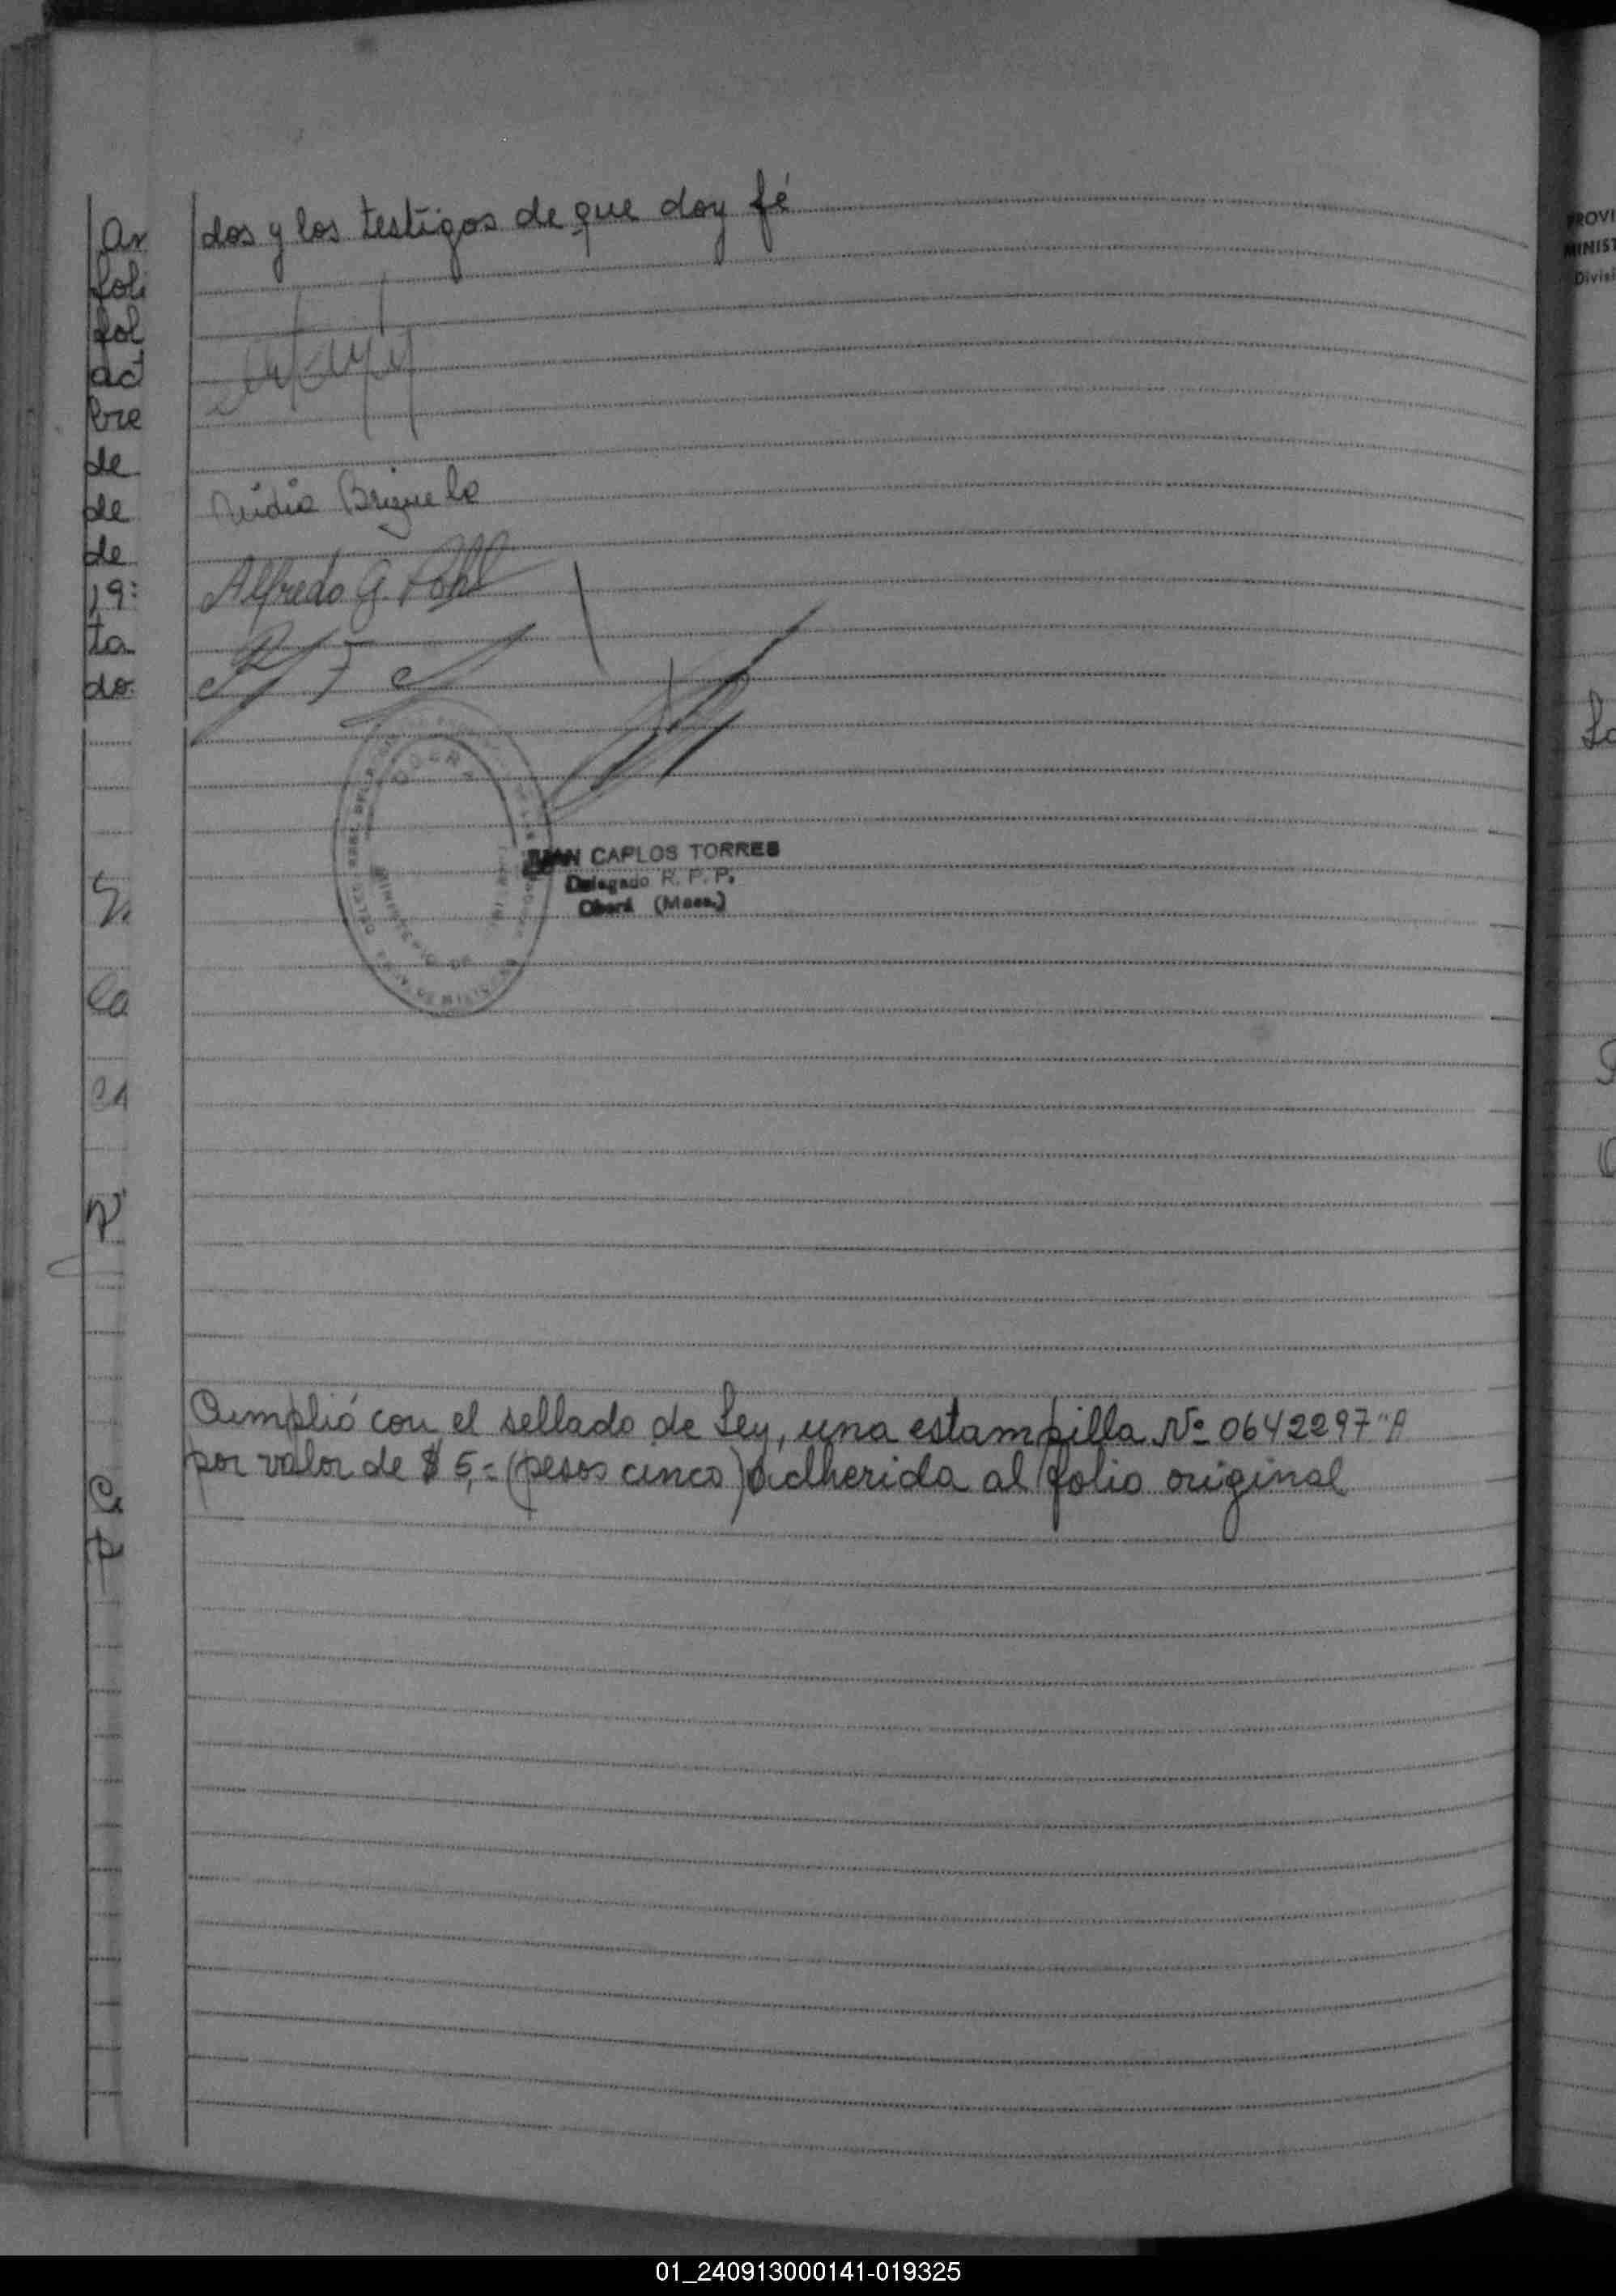 dos y los testigos de que doy fé
Nidia Brizuela
Alfredo G. Pohl
JUAN CARLOS TORRES
Delegado R. P. P.
Oberá (Mnes.)
MINISTERIO DE
Cumplió con el sellado de Ley, una estampilla Nº 0642297 "A
por valor de $ 5,= (pesos cinco) adherida al folio original
An
foli
fol
act
bre
de
de
de
19:
ta
do
PROVI
MINIST
Divisi
01_240913000141-019325